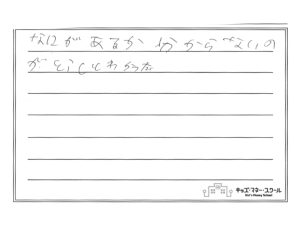 なにがあるか分からないの
が わかった
キッズ・マネー・スクール
Kid's Money School